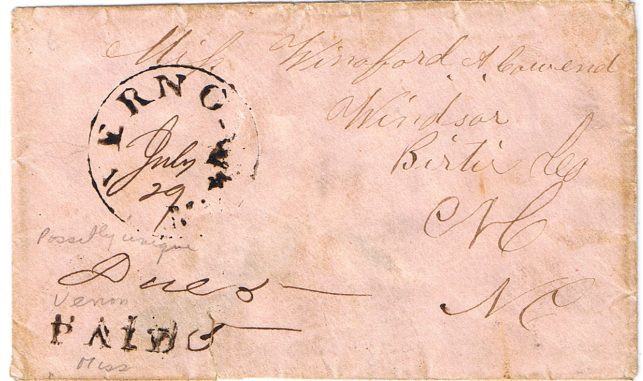 Miss Winoford A. Cowend
Windsor
Birtie Co
NC
NC
VERNON
July
29
Possibly unique
Due 5
Vernon
PAID 5
Miss